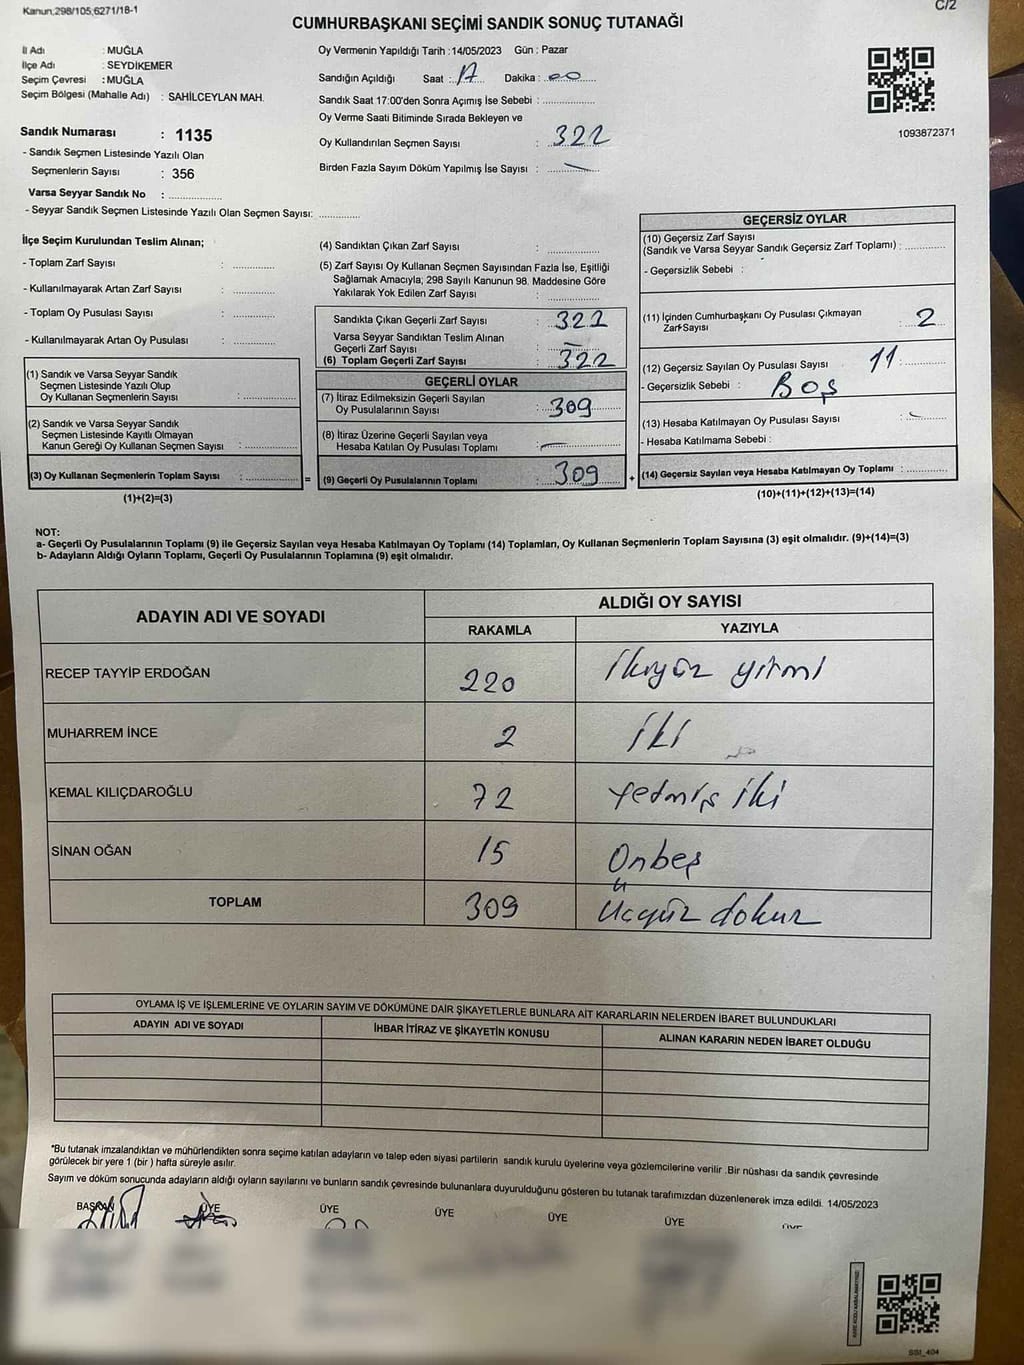 Kanun;298/105,6271/18-1
C/2
CUMHURBAŞKANI SEÇİMİ SANDIK SONUÇ TUTANAĞI
İl Adı : MUĞLA
İlçe Adı : SEYDİKEMER
Seçim Çevresi : MUĞLA
Seçim Bölgesi (Mahalle Adı) : SAHİLCEYLAN MAH.
Sandık Numarası : 1135
- Sandık Seçmen Listesinde Yazılı Olan
Seçmenlerin Sayısı : 356
Varsa Seyyar Sandık No : ..............
- Seyyar Sandık Seçmen Listesinde Yazılı Olan Seçmen Sayısı: ..............
Oy Vermenin Yapıldığı Tarih : 14/05/2023 Gün : Pazar
Sandığın Açıldığı Saat : 17 Dakika : 00
Sandık Saat 17:00'den Sonra Açımış İse Sebebi : ..............
Oy Verme Saati Bitiminde Sırada Bekleyen ve
Oy Kullandırılan Seçmen Sayısı : 322
Birden Fazla Sayım Döküm Yapılmış İse Sayısı : —
1093872371
İlçe Seçim Kurulundan Teslim Alınan;
- Toplam Zarf Sayısı : ..............
- Kullanılmayarak Artan Zarf Sayısı : ..............
- Toplam Oy Pusulası Sayısı : ..............
- Kullanılmayarak Artan Oy Pusulası : ..............
(1) Sandık ve Varsa Seyyar Sandık
Seçmen Listesinde Yazılı Olup
Oy Kullanan Seçmenlerin Sayısı : ..............
(2) Sandık ve Varsa Seyyar Sandık
Seçmen Listesinde Kayıtlı Olmayan
Kanun Gereği Oy Kullanan Seçmen Sayısı : ..............
(3) Oy Kullanan Seçmenlerin Toplam Sayısı : ..............
(1)+(2)=(3)
=
(4) Sandıktan Çıkan Zarf Sayısı : ..............
(5) Zarf Sayısı Oy Kullanan Seçmen Sayısından Fazla İse, Eşitliği
Sağlamak Amacıyla; 298 Sayılı Kanunun 98. Maddesine Göre
Yakılarak Yok Edilen Zarf Sayısı : ..............
Sandıkta Çıkan Geçerli Zarf Sayısı : 322
Varsa Seyyar Sandıktan Teslim Alınan
Geçerli Zarf Sayısı : —
(6) Toplam Geçerli Zarf Sayısı : 322
GEÇERLİ OYLAR
(7) İtiraz Edilmeksizin Geçerli Sayılan
Oy Pusulalarının Sayısı : 309
(8) İtiraz Üzerine Geçerli Sayılan veya
Hesaba Katılan Oy Pusulası Toplamı : —
(9) Geçerli Oy Pusulalarının Toplamı : 309
+
GEÇERSİZ OYLAR
(10) Geçersiz Zarf Sayısı
(Sandık ve Varsa Seyyar Sandık Geçersiz Zarf Toplamı) : ..............
- Geçersizlik Sebebi :
(11) İçinden Cumhurbaşkanı Oy Pusulası Çıkmayan
Zarf Sayısı : 2
(12) Geçersiz Sayılan Oy Pusulası Sayısı : 11
- Geçersizlik Sebebi : Boş
(13) Hesaba Katılmayan Oy Pusulası Sayısı : —
- Hesaba Katılmama Sebebi :
(14) Geçersiz Sayılan veya Hesaba Katılmayan Oy Toplamı : ..............
(10)+(11)+(12)+(13)=(14)
NOT:
a- Geçerli Oy Pusulalarının Toplamı (9) ile Geçersiz Sayılan veya Hesaba Katılmayan Oy Toplamı (14) Toplamları, Oy Kullanan Seçmenlerin Toplam Sayısına (3) eşit olmalıdır. (9)+(14)=(3)
b- Adayların Aldığı Oyların Toplamı, Geçerli Oy Pusulalarının Toplamına (9) eşit olmalıdır.
ADAYIN ADI VE SOYADI
ALDIĞI OY SAYISI
RAKAMLA YAZIYLA
RECEP TAYYİP ERDOĞAN 220 İkiyüz yirmi
MUHARREM İNCE 2 İki
KEMAL KILIÇDAROĞLU 72 Yetmiş iki
SİNAN OĞAN 15 Onbeş
TOPLAM 309 Üçyüz dokuz
OYLAMA İŞ VE İŞLEMLERİNE VE OYLARIN SAYIM VE DÖKÜMÜNE DAİR ŞİKAYETLERLE BUNLARA AİT KARARLARIN NELERDEN İBARET BULUNDUKLARI
ADAYIN ADI VE SOYADI İHBAR İTİRAZ VE ŞİKAYETİN KONUSU ALINAN KARARIN NEDEN İBARET OLDUĞU
*Bu tutanak imzalandıktan ve mühürlendikten sonra seçime katılan adayların ve talep eden siyasi partilerin sandık kurulu üyelerine veya gözlemcilerine verilir .Bir nüshası da sandık çevresinde
görülecek bir yere 1 (bir ) hafta süreyle asılır.
Sayım ve döküm sonucunda adayların aldığı oyların sayılarını ve bunların sandık çevresinde bulunanlara duyurulduğunu gösteren bu tutanak tarafımızdan düzenlenerek imza edildi. 14/05/2023
BAŞKAN ÜYE ÜYE ÜYE ÜYE ÜYE ÜYE
KARE KODU KARALAMAYINIZ!
SSI_404